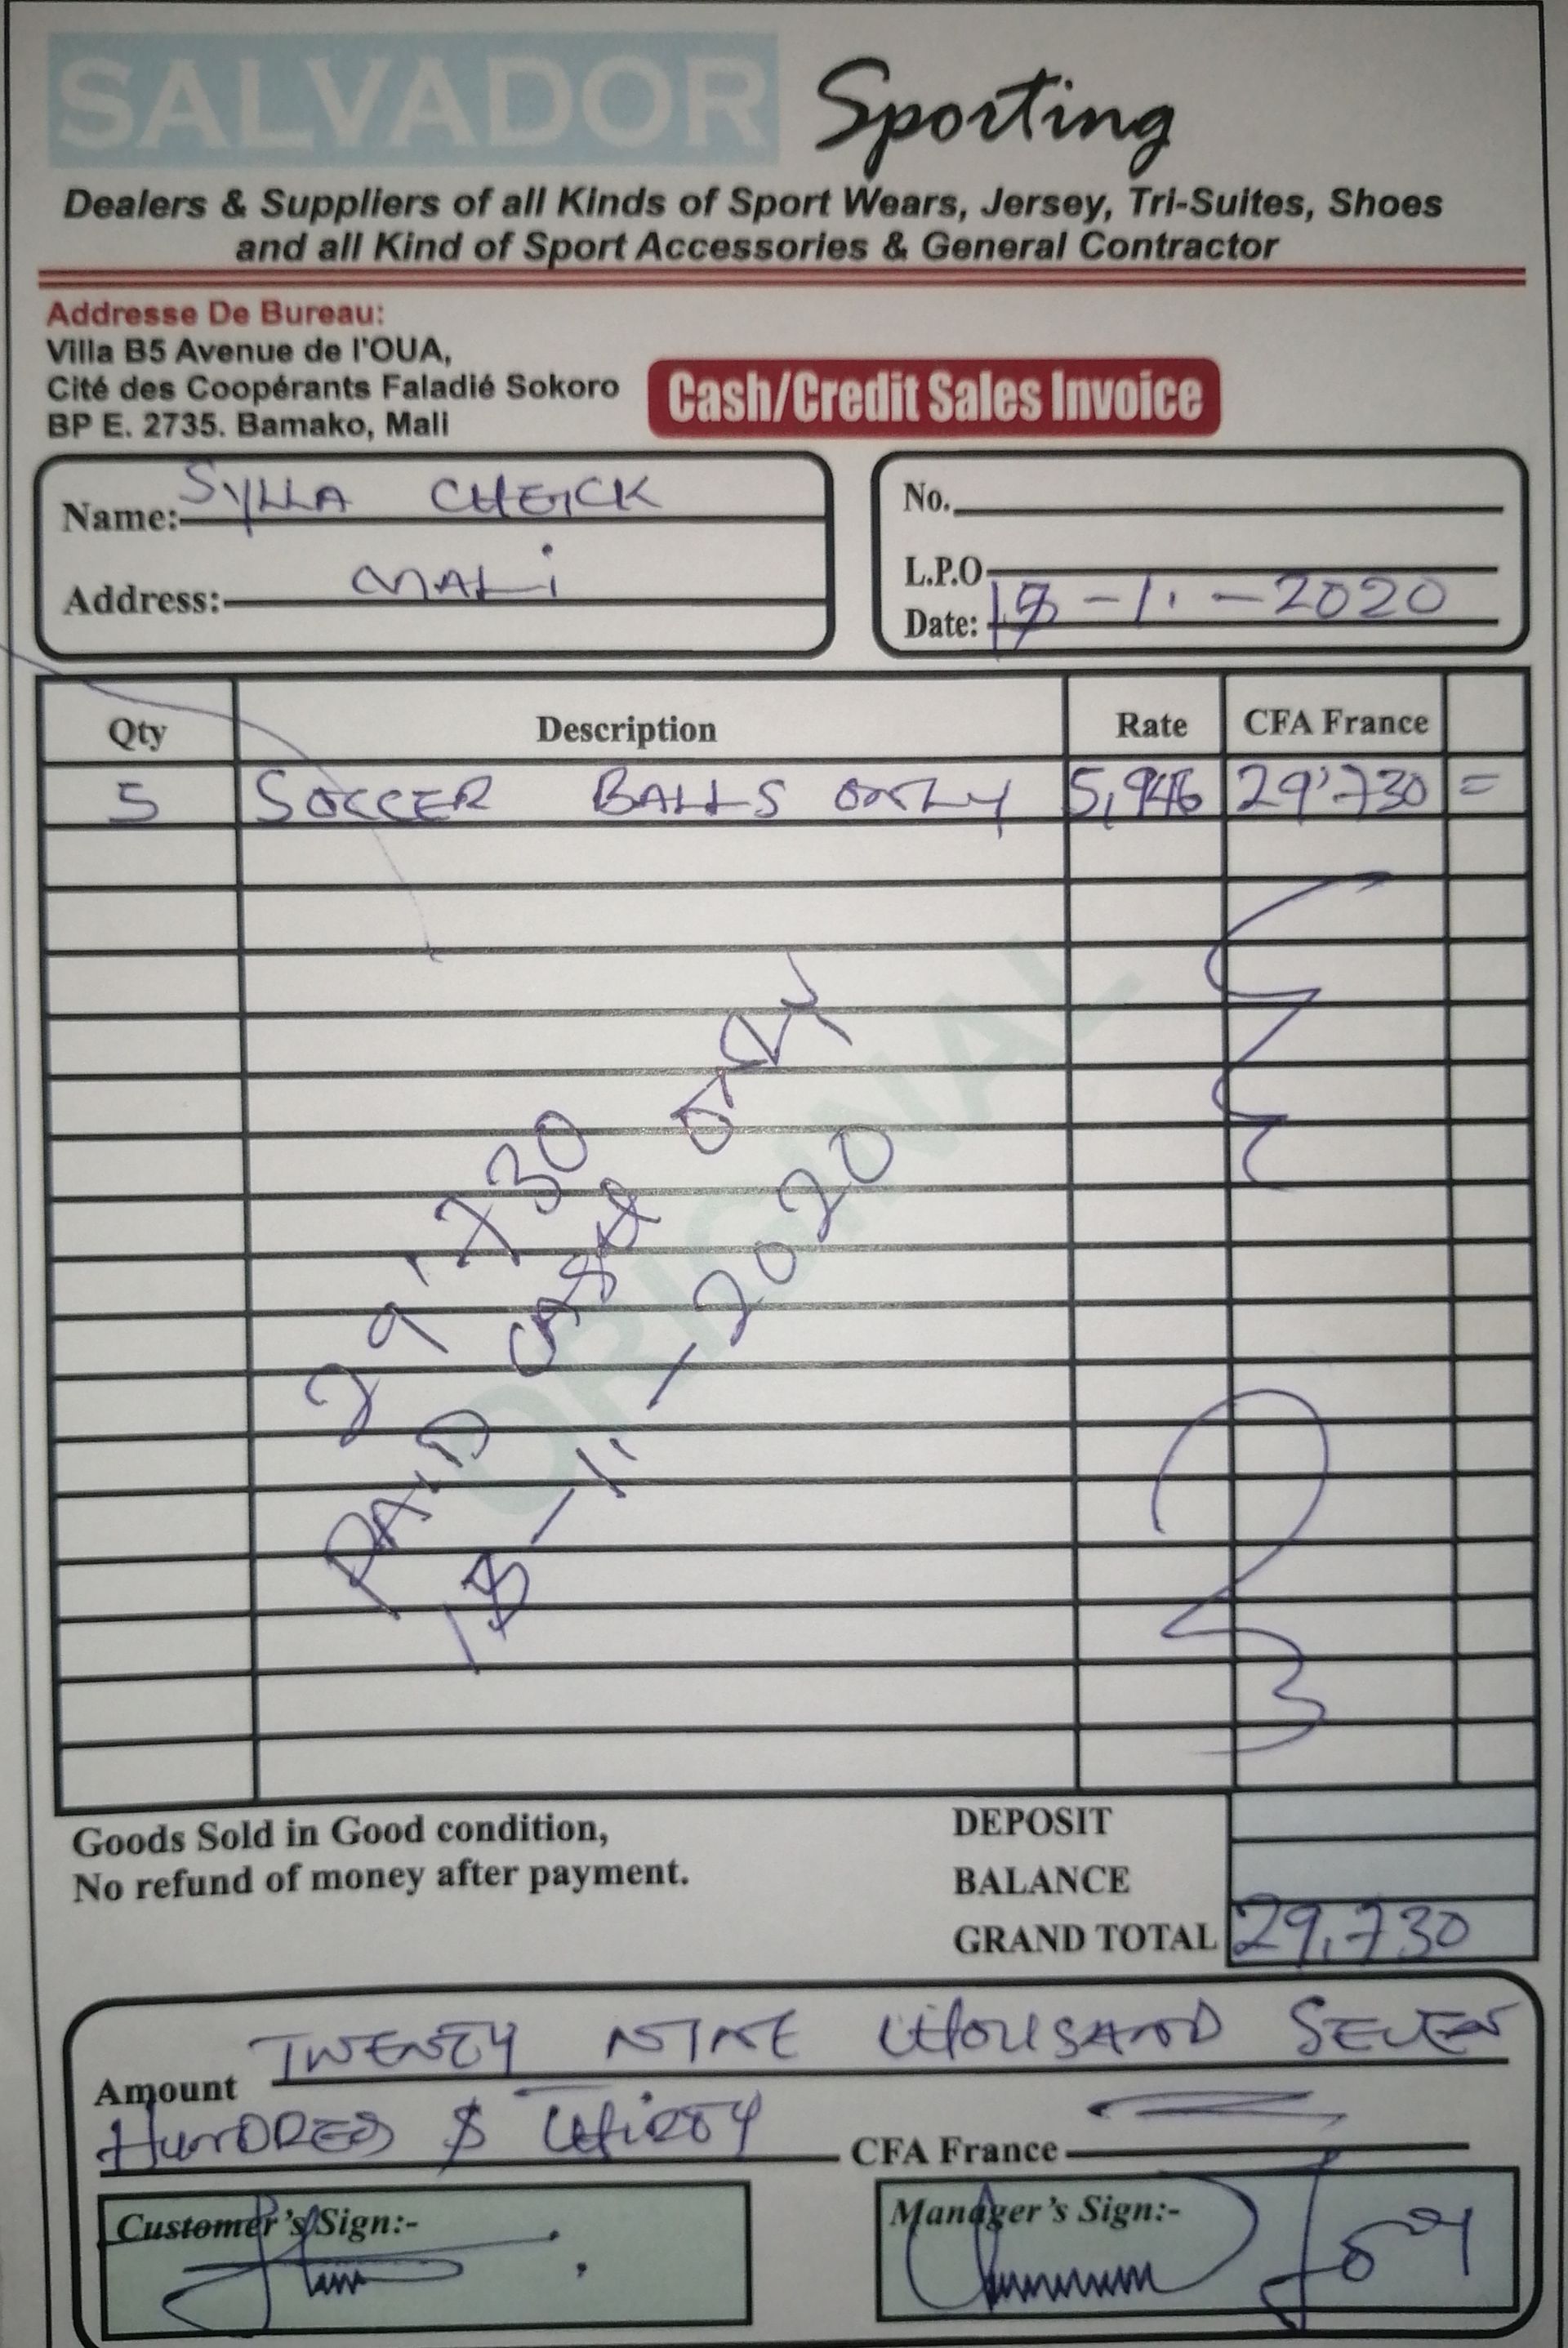 SALVADOR Sporting
Dealers & Suppliers of all Kinds of Sport Wears, Jersey, Tri-Suites, Shoes
and all Kind of Sport Accessories & General Contractor
Addresse De Bureau:
Villa B5 Avenue de l'OUA,
Cité des Coopérants Faladié Sokoro
BP E. 2735. Bamako, Mali
Cash/Credit Sales Invoice
Name: SYLLA CHEICK
Address: MALi
No.
L.P.O
Date: 18-11-2020
Qty Description Rate CFA France
5 SOCCER BALLS ONLY 5,946 29'730 =
ORIGINAL
29'730
PAiD CASH ONLY
18-11-2020
Goods Sold in Good condition,
No refund of money after payment.
DEPOSIT
BALANCE
GRAND TOTAL 29,730
Amount TWENTY NINE THOUSAND SEVEN
HUNDRED $ THiRTY CFA France
Customer's Sign:-
Manager's Sign:-